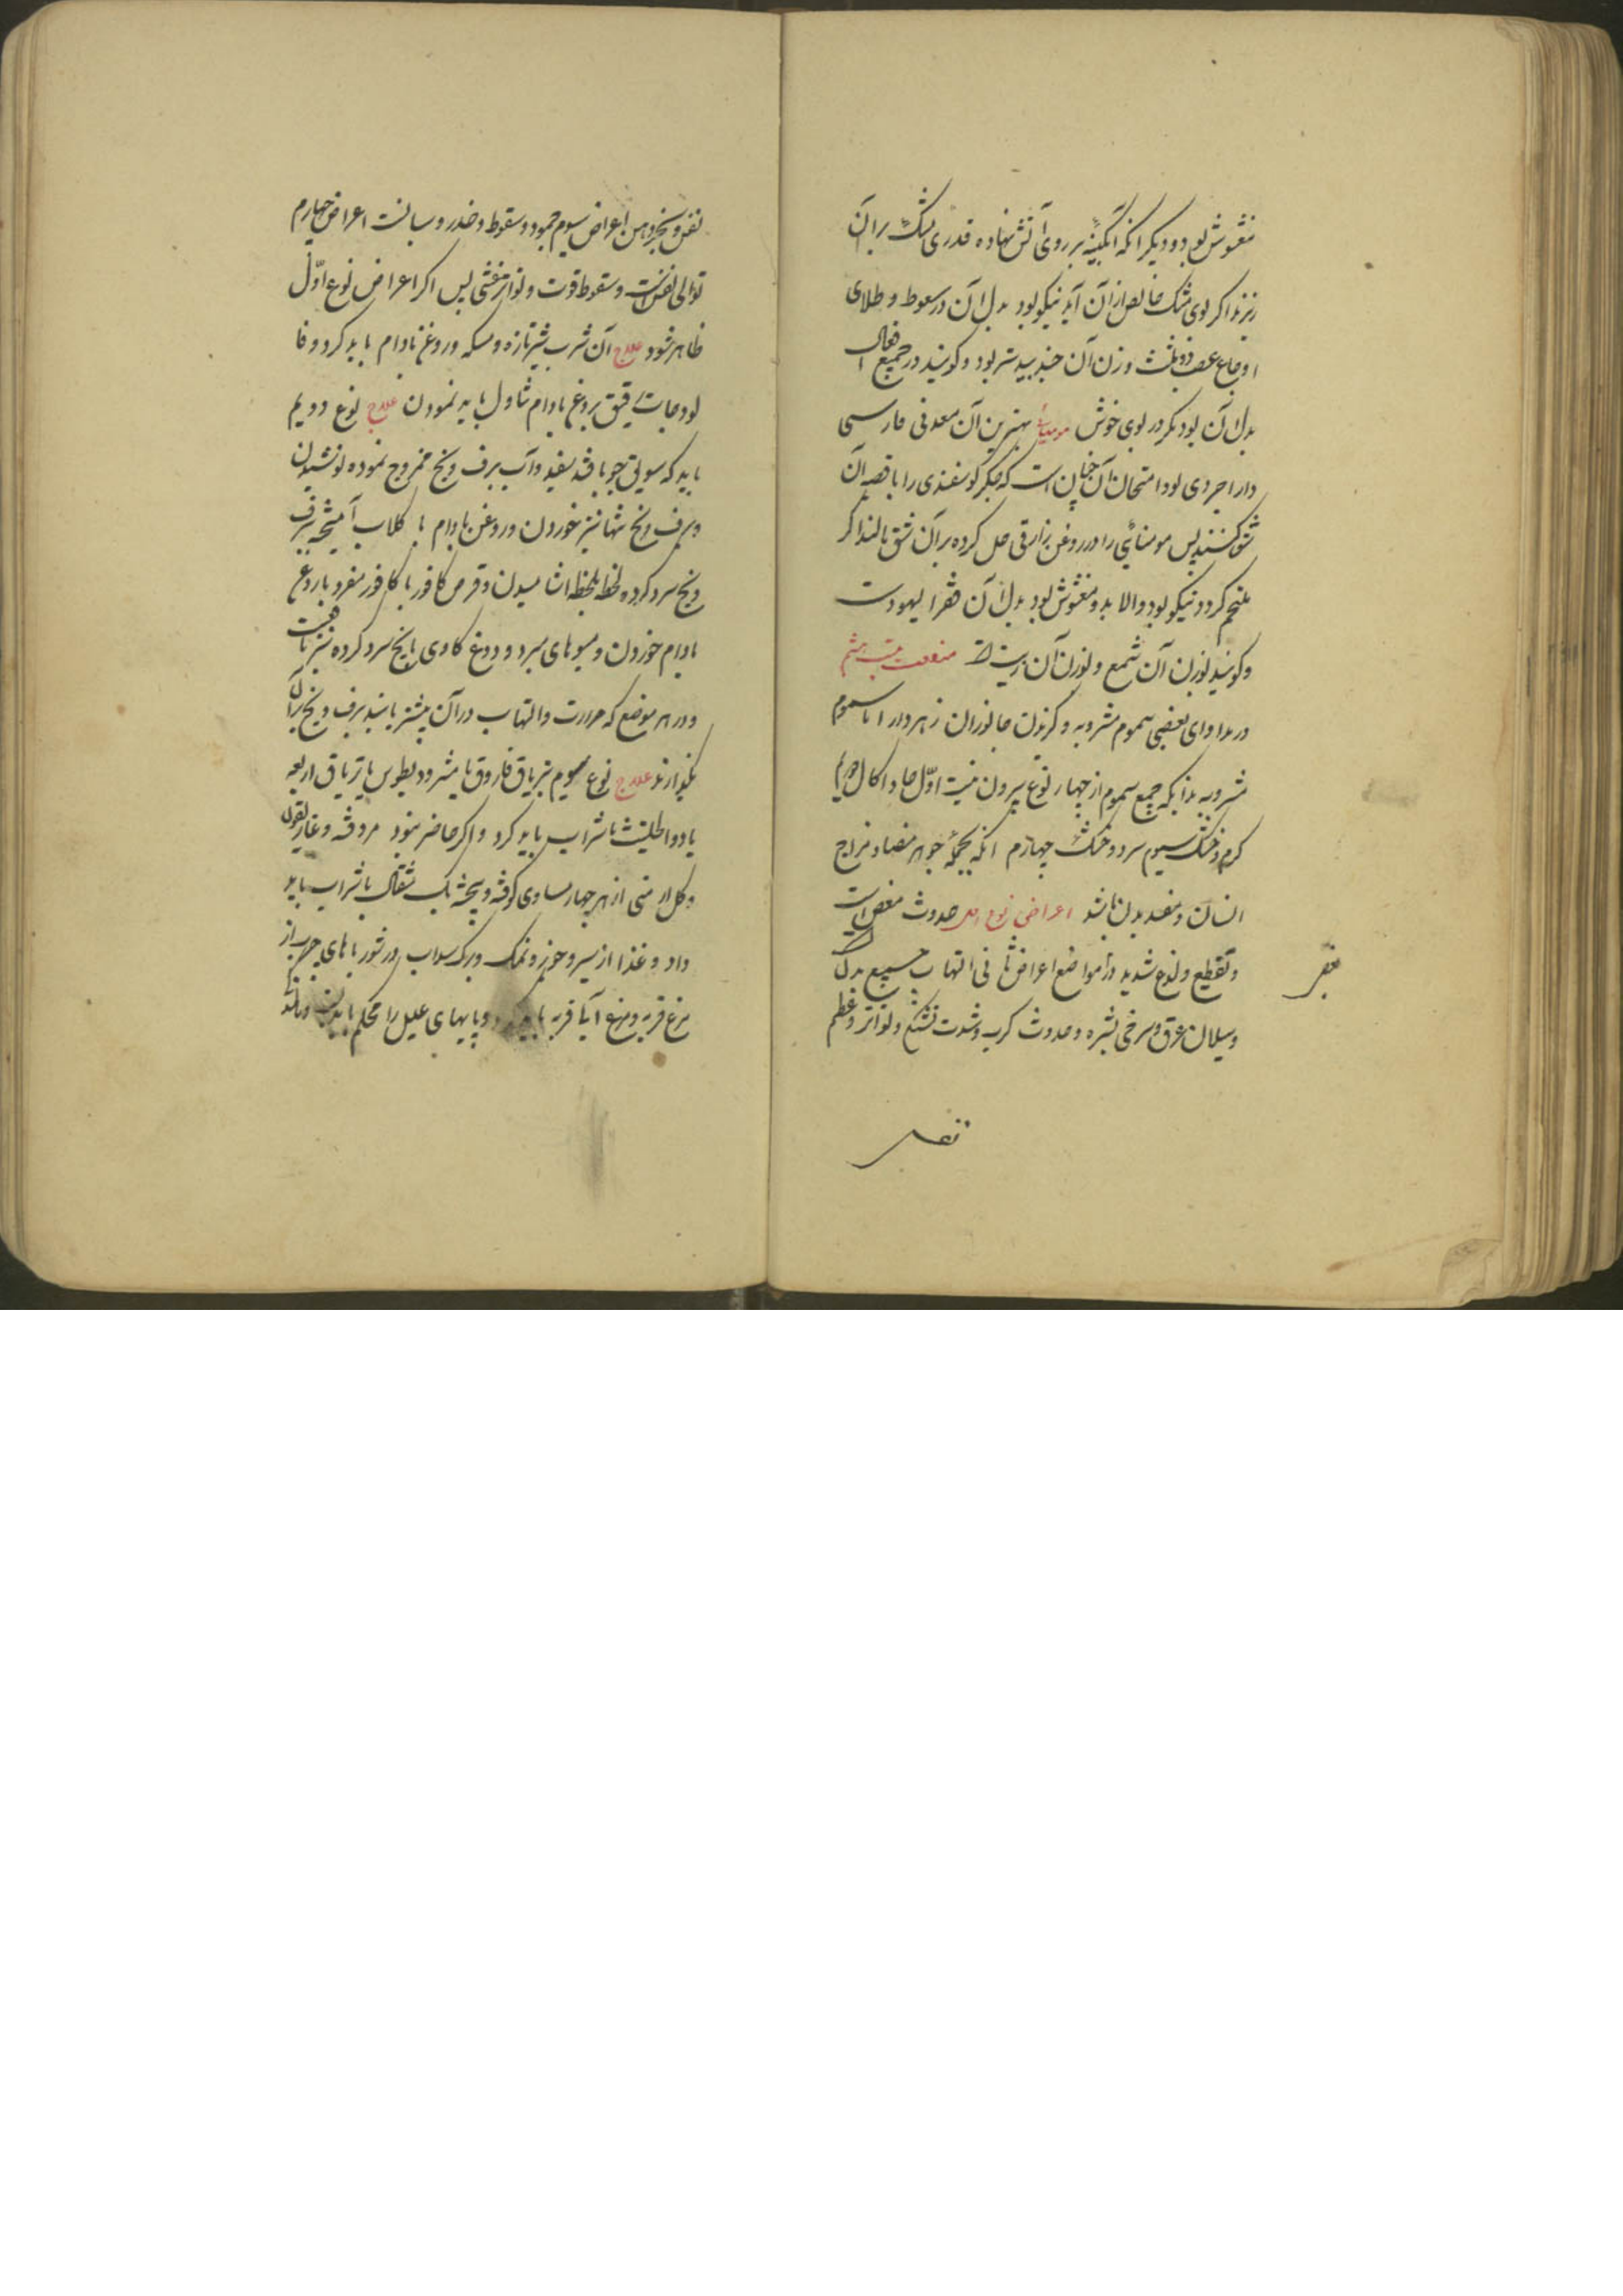 مغشوش بود و دیگر آنکه آبگینه بر روی آتش نهاده قدری مشک بر آن
ریزند اگر بوی مشک خالص از آن آید نیکو بود بدل آن در سعوط و طلای
اوجاع عصب دو ثلث وزن آن جندبیدستر بود و گویند در جمیع افعال
بدل آن بود مگر در بوی خوش مومیائی بهترین آن معدنی فارسی
دارابجردی بود امتحان آن چنان است که جگر گوسفندی را با قصبه آن
شق کنند پس مومیائی را در روغن رازقی حل کرده بر آن شق مالند اگر
ملتحم گردد نیکو بود والا بد و مغشوش بود بدل آن قفر الیهودست
و گویند بوزن آن شمع و بوزن آن زیت
در مداوای بعضی سموم مشروبه و گزیدن جانوران زهردار اما سموم
مشروبه بدانکه جمیع سموم از چهار نوع بیرون نیست اول حاد اکال دویم
گرم و خشک سیوم سرد و خشک چهارم آنکه بجمله جوهر مضاد مزاج
انسان و مفسد بدن باشد اعراض نوع اول حدوث مغص است
و تقطیع و لذع شدید در مواضع اعراض ثانی التهاب جمیع بدن
و سیلان عرق و سرخی بشره و حدوث کرب و شدت تشنگی و تواتر و عظم
نفس
نفس و اعراض سیوم جمود و سقوط و خدر و سباتست اعراض چهارم
توالی و سقوط قوت و تواتر غشی پس اگر اعراض نوع اول
ظاهر شود علاج آن شرب شیر تازه و مسکه و روغن بادام باید کرد و فا
لوذجات رقیق بروغن بادام تناول باید نمودن علاج نوع دویم
باید که سویق جو با قند سفید و آب برف و یخ ممزوج نموده نوشیدن
و برف و یخ تنها نیز خوردن و روغن بادام با گلاب آمیخته ببرف
و یخ سرد کرده لحظه بلحظه اشامیدن و قرص کافور یا کافور مفرد با روغن
بادام خوردن و میوهای سرد و دوغ گاوی با یخ سرد کرده نیز نافعست
و در هر موضع که حرارت و التهاب در آن بیشتر باشد برف و یخ بر آن
بگذارند علاج نوع سیوم بتریاق فاروق یا مثرودیطوس یا تریاق اربعه
یا دواء الحلتیت با شراب باید کرد و اگر حاضر نبود
و گل ارمنی از هر چهار مساوی کوفته و بیخته یک مثقال با شراب باید
داد و غذا از سیر و جوز و نمک و برگ سداب و شورباهای چرب از
مرغ فربه و مرغ آبی فربه باید و پایهای علیل را محکم باید